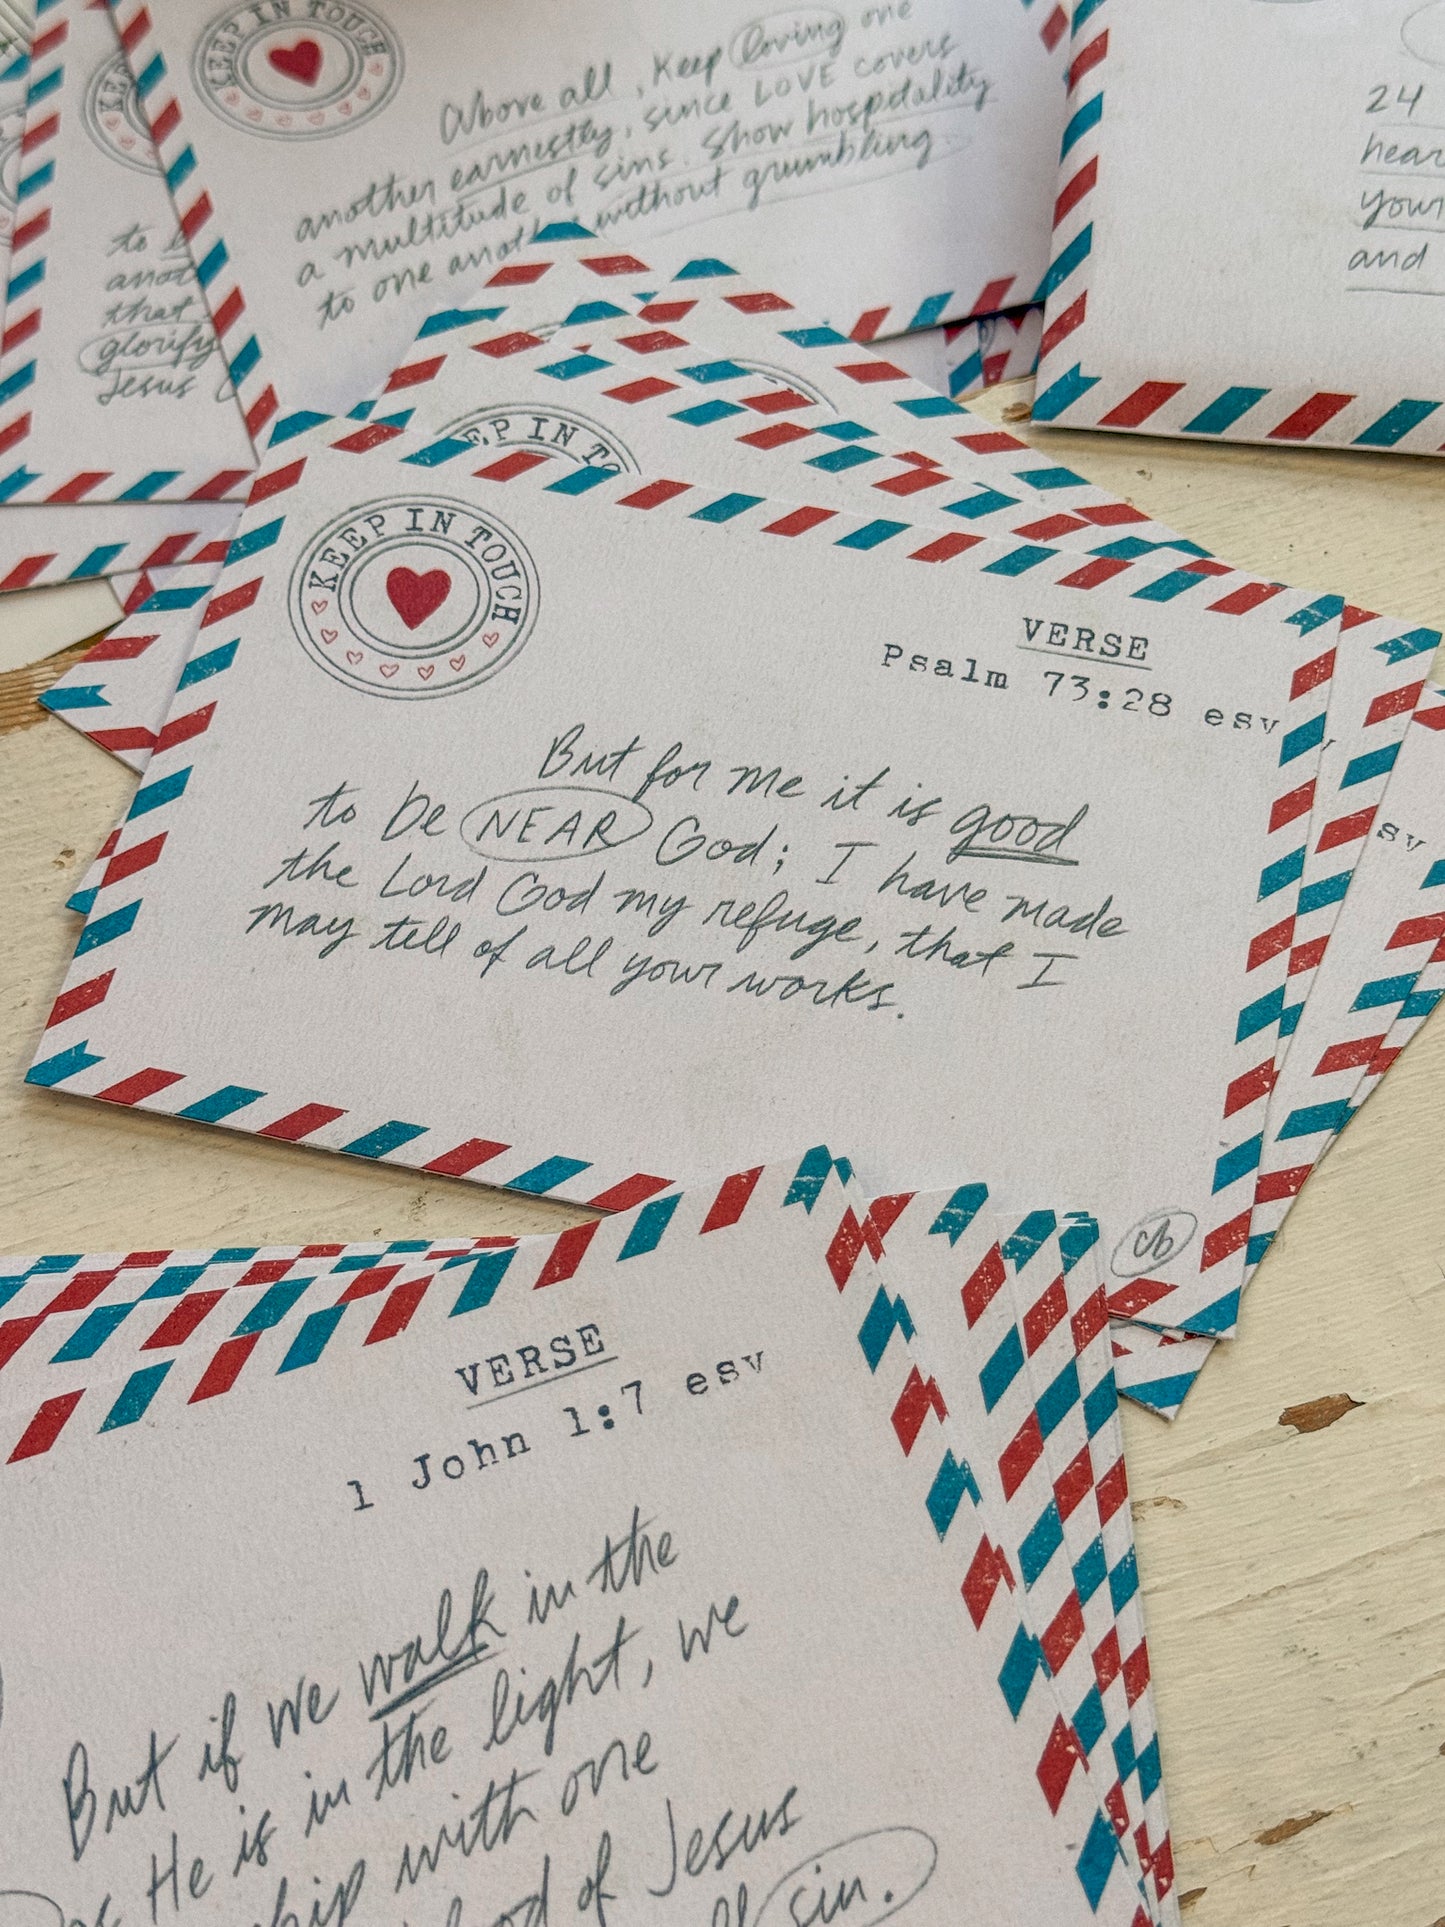 KEEP IN TOUCH
Above all, Keep loving one
another earnestly, since LOVE covers
a multitude of sins. Show hospitality
to one another without grumbling.
KEEP
to
anot
that
glorify
Jesus
24
hear
your
and
EP IN TO
KEEP IN TOUCH
VERSE
Psalm 73:28 esv
But for me it is good
to be NEAR God; I have made
the Lord God my refuge, that I
may tell of all your works.
cb
sv
VERSE
1 John 1:7 esv
But if we walk in the
as He is in the light, we
ship with one
of Jesus
sin.